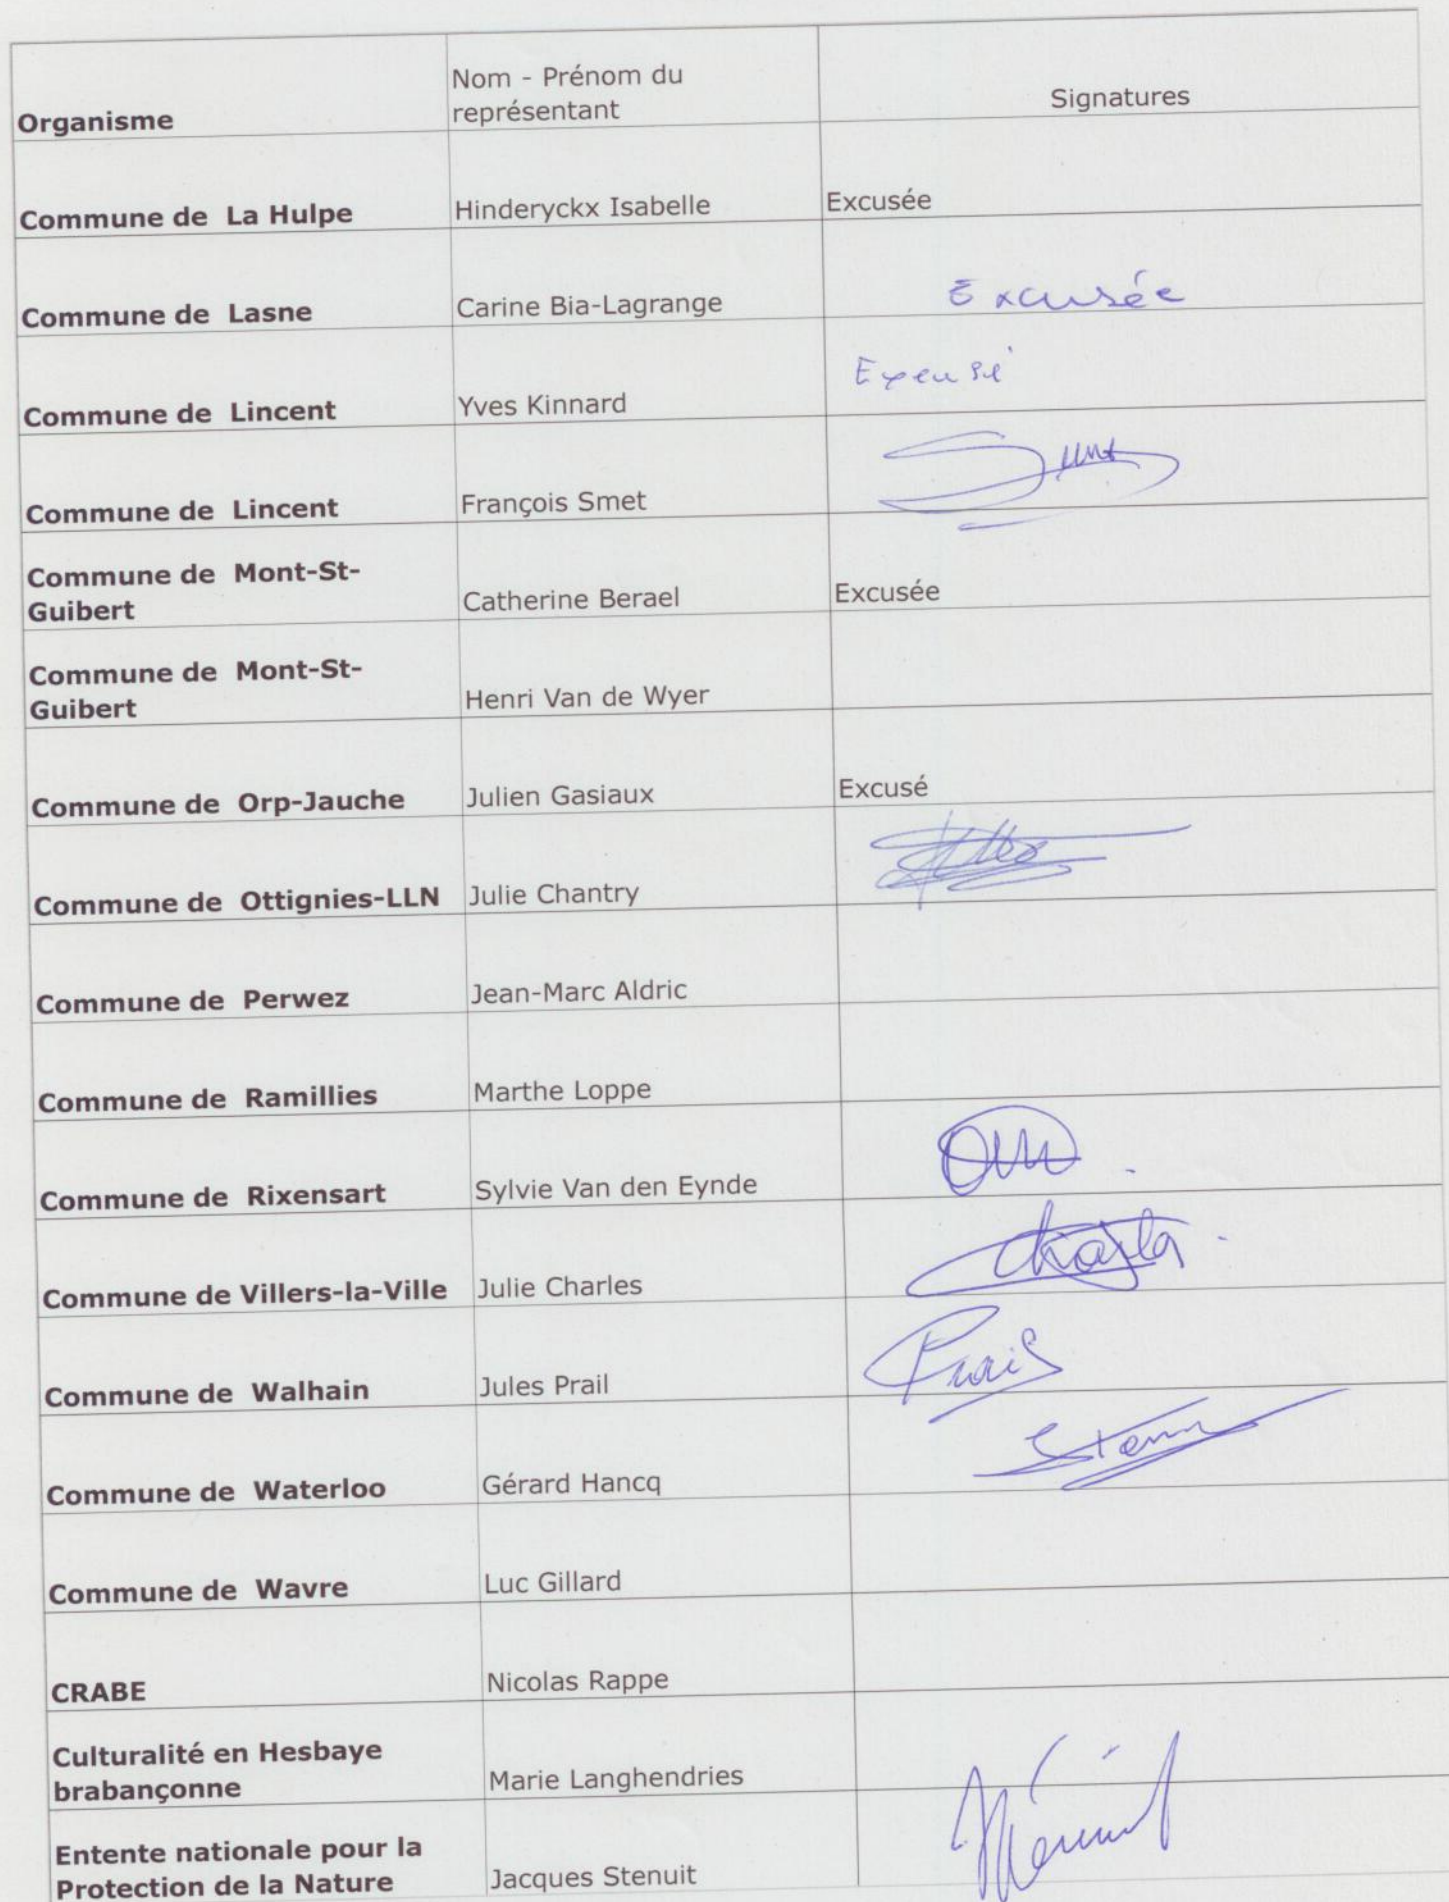 Organisme
Nom - Prénom du
représentant
Signatures
Commune de La Hulpe
Hinderyckx Isabelle
Excusée
Commune de Lasne
Carine Bia-Lagrange
Excusée
Commune de Lincent
Yves Kinnard
Excusé
Commune de Lincent
François Smet
Commune de Mont-St-
Guibert
Catherine Berael
Excusée
Commune de Mont-St-
Guibert
Henri Van de Wyer
Commune de Orp-Jauche
Julien Gasiaux
Excusé
Commune de Ottignies-LLN
Julie Chantry
Commune de Perwez
Jean-Marc Aldric
Commune de Ramillies
Marthe Loppe
Commune de Rixensart
Sylvie Van den Eynde
Commune de Villers-la-Ville
Julie Charles
Commune de Walhain
Jules Prail
Commune de Waterloo
Gérard Hancq
Commune de Wavre
Luc Gillard
CRABE
Nicolas Rappe
Culturalité en Hesbaye
brabançonne
Marie Langhendries
Entente nationale pour la
Protection de la Nature
Jacques Stenuit